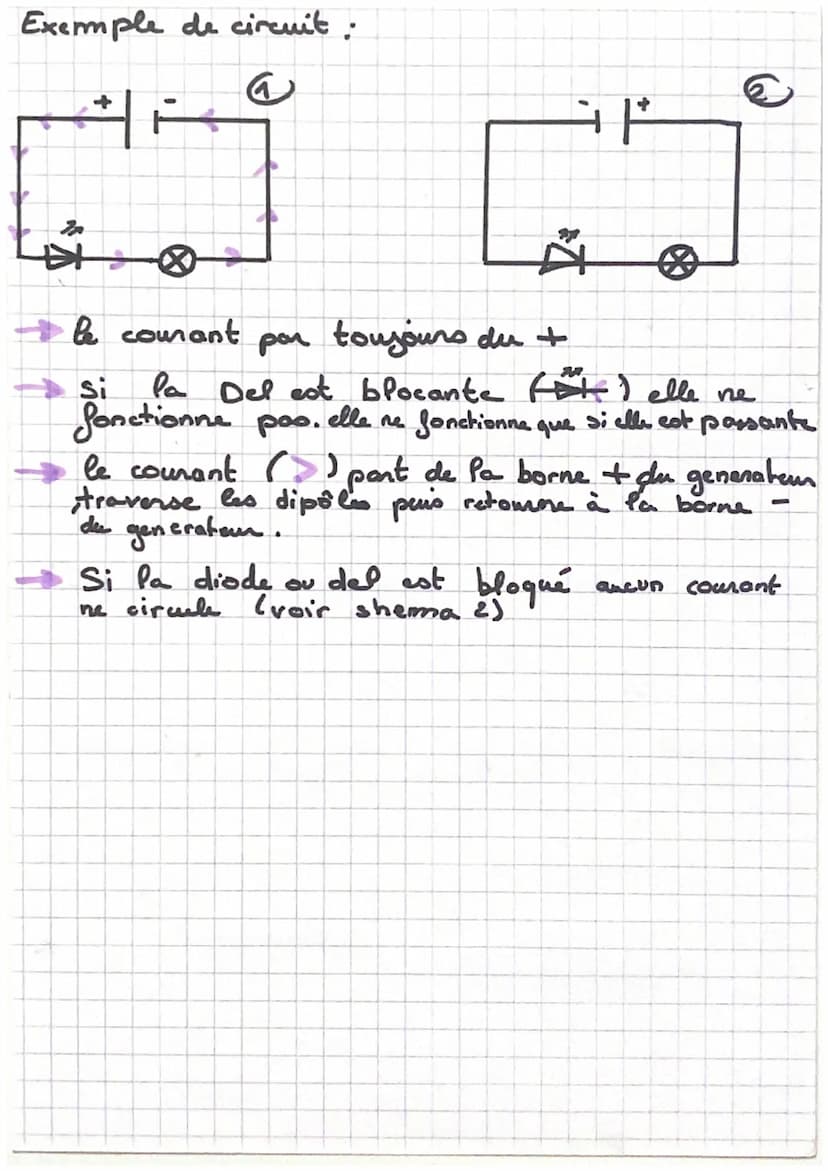 Exemple de circuit :
1 2
+ - - +
le courant par toujours du +
si la Del est blocante ( ) elle ne
fonctionne pas. elle ne fonctionne que si elle est passante
le courant (>) part de la borne + du generateur
traverse les dipôles puis retourne à la borne -
du generateur.
Si la diode ou del est bloqué aucun courant
ne circule (voir shema 2)